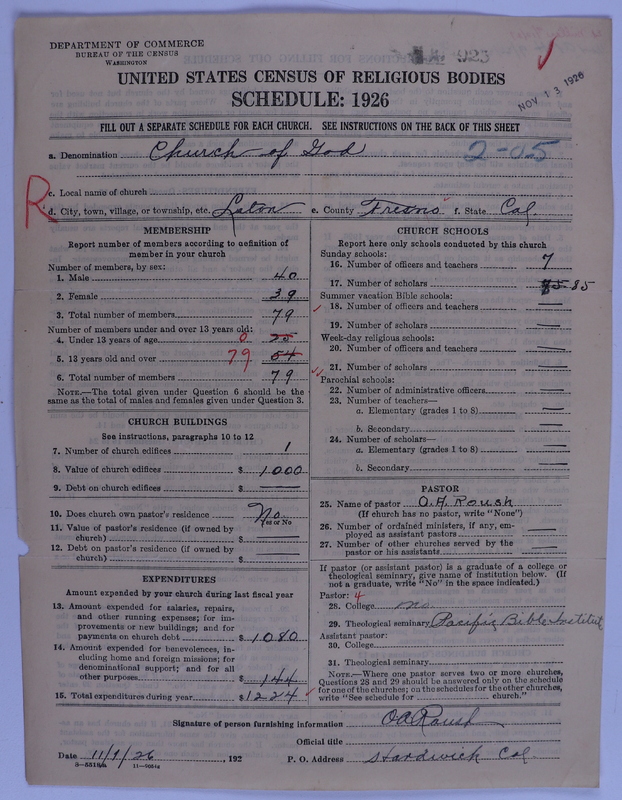 DEPARTMENT OF COMMERCE
BUREAU OF THE CENSUS
WASHINGTON
NOV 13 1926
UNITED STATES CENSUS OF RELIGIOUS BODIES
SCHEDULE: 1926
FILL OUT A SEPARATE SCHEDULE FOR EACH CHURCH. SEE INSTRUCTIONS ON THE BACK OF THIS SHEET
a. Denomination Church of God 2-05
R
c. Local name of church
d. City, town, village, or township, etc. Laton e. County Fresno f. State Cal.
MEMBERSHIP
Report number of members according to definition of
member in your church
Number of members, by sex:
1. Male 40
2. Female 39
3. Total number of members 79
Number of members under and over 13 years old:
4. Under 13 years of age 0 25
5. 13 years old and over 79 54
6. Total number of members 79
NOTE.—The total given under Question 6 should be
same as the total of males and females given under Question 3.
CHURCH BUILDINGS
See instructions, paragraphs 10 to 12
7. Number of church edifices 1
8. Value of church edifices $ 1000
9. Debt on church edifices $ —
10. Does church own pastor's residence No
Yes or No
11. Value of pastor's residence (if owned by
church) $ —
12. Debt on pastor's residence (if owned by
church) $ —
EXPENDITURES
Amount expended by your church during last fiscal year
13. Amount expended for salaries, repairs,
and other running expenses; for im-
provements or new buildings; and for
payments on church debt $ 1080
14. Amount expended for benevolences, in-
cluding home and foreign missions; for
denominational support; and for all
other purposes $ 144
15. Total expenditures during year $ 1224
CHURCH SCHOOLS
Report here only schools conducted by this church
Sunday schools:
16. Number of officers and teachers 7
17. Number of scholars 85
Summer vacation Bible schools:
18. Number of officers and teachers —
19. Number of scholars —
Week-day religious schools:
20. Number of officers and teachers —
21. Number of scholars —
Parochial schools:
22. Number of administrative officers —
23. Number of teachers—
a. Elementary (grades 1 to 8) —
b. Secondary —
24. Number of scholars—
a. Elementary (grades 1 to 8) —
b. Secondary —
PASTOR
25. Name of pastor O. A. Roush
(If church has no pastor, write "None")
26. Number of ordained ministers, if any, em-
ployed as assistant pastors —
27. Number of other churches served by the
pastor or his assistants —
If pastor (or assistant pastor) is a graduate of a college or
theological seminary, give name of institution below. (If
not a graduate, write "No" in the space indicated.)
Pastor: 4
28. College no
29. Theological seminary Pacific Bible Institute
Assistant pastor:
30. College
31. Theological seminary
NOTE.—Where one pastor serves two or more churches,
Questions 28 and 29 should be answered only on the schedule
for one of the churches; on the schedules for the other churches,
write "See schedule for church."
Signature of person furnishing information OA Roush
Official title
Date 11/9/26, 192 P. O. Address Hardwick Cal.
11—9054a